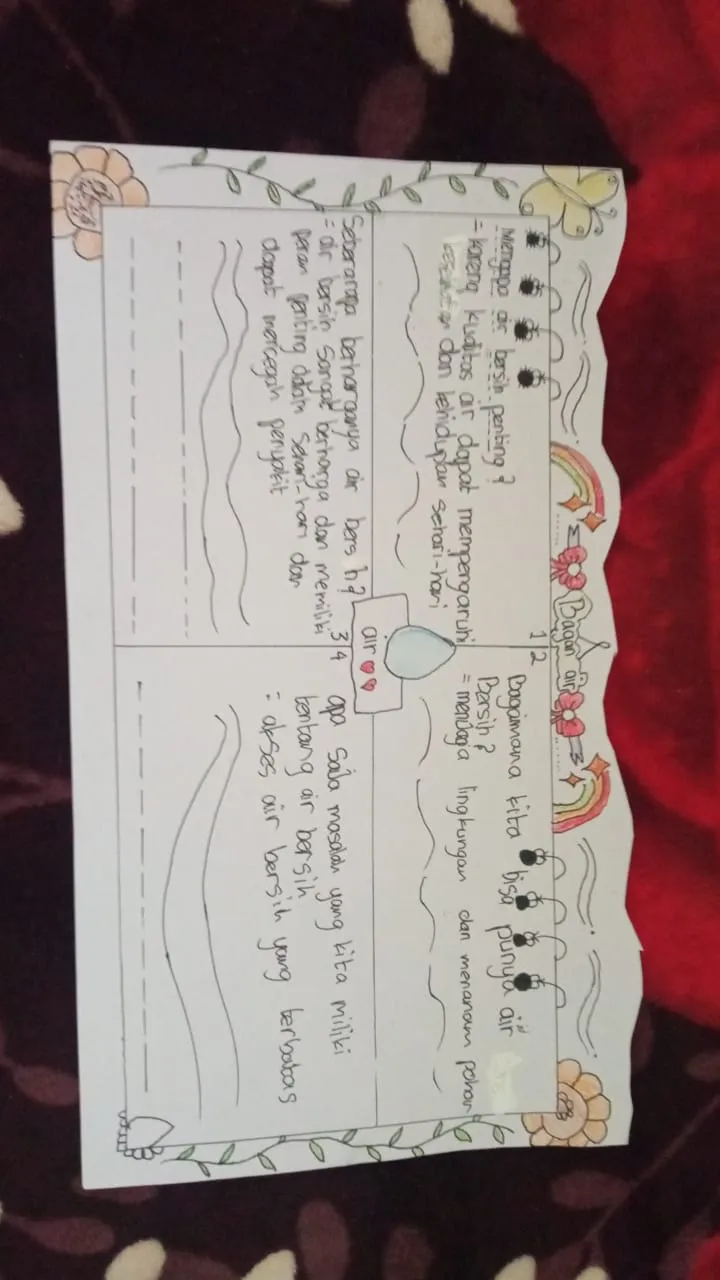 Bagan air
1
Mengapa air bersih penting?
= karena kualitas air dapat mempengaruhi
kesehatan dan kehidupan sehari-hari
2
Bagaimana kita bisa punya air
Bersih?
= menjaga lingkungan dan menanam pohon
air
3
Seberarapa berharganya air bersih?
= air bersih sangat berharga dan memiliki
peran penting dalam sehari-hari dan
dapat mencegah penyakit
4
apa saja masalah yang kita miliki
tentang air bersih
= akses air bersih yang terbatas